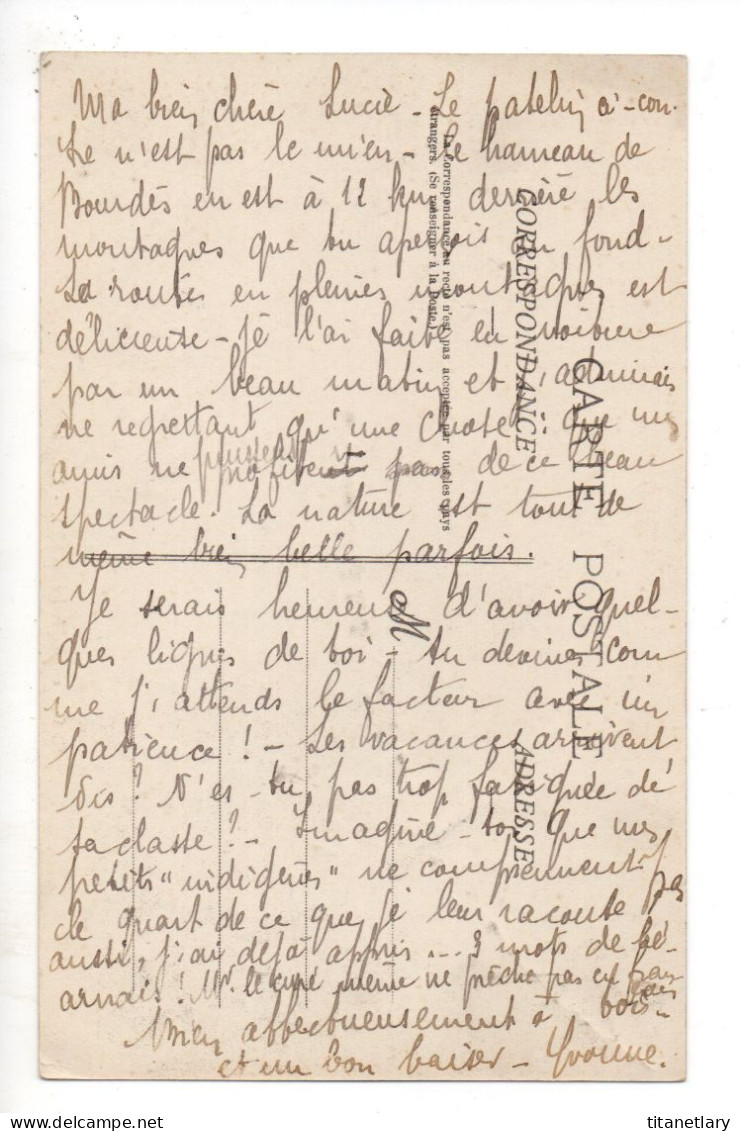 Ma bien chère Lucie - Le patelin ci-con-
tre n'est pas le mien - Le hameau de
Bourdès en est à 12 km derrière les
montagnes que tu aperçois au fond -
La route en pleines montagnes est
délicieuse - je l'ai faite en voiture
par un beau matin et j'admirais
ne regrettant qu'une chose, que mes
amis ne puissent profiter de ce beau
spectacle. La nature est tout de
même bien belle parfois.
Je serais heureuse d'avoir quel-
ques lignes de toi - tu devines com
me j'attends le facteur avec im
patience ! - Les vacances arrivent
dis ? N'es-tu pas trop fatiguée de
ta classe ? - Imagine-toi que mes
petits "indigènes" ne comprennent pas
le quart de ce que je leur raconte
aussi, j'ai déjà appris ... 3 mots de bé-
arnais ! Mr. le curé même ne prêche pas en fran
çais
Bien affectueusement à toi -
et un bon baiser - Yvonne.
CARTE POSTALE
CORRESPONDANCE
ADRESSE
La Correspondance au recto n'est pas acceptée par tous les pays
étrangers. (Se renseigner à la Poste.)
M
titanetlary